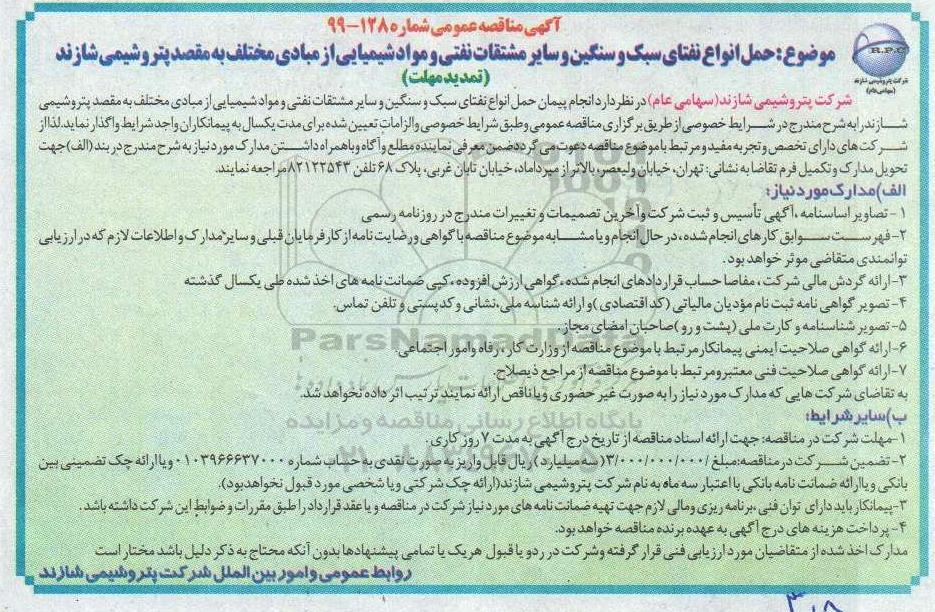 آگهی مناقصه عمومی شماره ۱۲۸-۹۹
موضوع: حمل انواع نفتای سبک و سنگین و سایر مشتقات نفتی و مواد شیمیایی از مبادی مختلف به مقصد پتروشیمی شازند
(تمدید مهلت)
R.P.C
شرکت پتروشیمی شازند
(سهامی عام)
شرکت پتروشیمی شازند(سهامی عام) در نظر دارد انجام پیمان حمل انواع نفتای سبک و سنگین و سایر مشتقات نفتی و مواد شیمیایی از مبادی مختلف به مقصد پتروشیمی
شازند را به شرح مندرج در شرایط خصوصی از طریق برگزاری مناقصه عمومی و طبق شرایط خصوصی و الزامات تعیین شده برای مدت یکسال به پیمانکاران واجد شرایط واگذار نماید. لذا از
شرکت های دارای تخصص و تجربه مفید و مرتبط با موضوع مناقصه دعوت می گردد ضمن معرفی نماینده مطلع و آگاه و باهمراه داشتن مدارک مورد نیاز به شرح مندرج در بند (الف) جهت
تحویل مدارک و تکمیل فرم تقاضا به نشانی: تهران، خیابان ولیعصر، بالاتر از میرداماد، خیابان تابان غربی، پلاک ۶۸ تلفن ۸۲۱۲۲۵۴۳ مراجعه نمایند.
الف) مدارک مورد نیاز:
۱- تصاویر اساسنامه، آگهی تأسیس و ثبت شرکت و آخرین تصمیمات و تغییرات مندرج در روزنامه رسمی
۲- فهرست سوابق کارهای انجام شده، در حال انجام و یا مشابه موضوع مناقصه با گواهی و رضایت نامه از کارفرمایان قبلی و سایر مدارک و اطلاعات لازم که در ارزیابی
توانمندی متقاضی موثر خواهد بود.
۳- ارائه گردش مالی شرکت، مفاصا حساب قراردادهای انجام شده، گواهی ارزش افزوده، کپی ضمانت نامه های اخذ شده طی یکسال گذشته
۴- تصویر گواهی نامه ثبت نام مؤدیان مالیاتی (کد اقتصادی) و ارائه شناسه ملی، نشانی و کدپستی و تلفن تماس.
۵- تصویر شناسنامه و کارت ملی (پشت و رو) صاحبان امضای مجاز.
ParsNamadData
۶- ارائه گواهی صلاحیت ایمنی پیمانکار مرتبط با موضوع مناقصه از وزارت کار، رفاه و امور اجتماعی.
۷- ارائه گواهی صلاحیت فنی معتبر و مرتبط با موضوع مناقصه از مراجع ذیصلاح.
به تقاضای شرکت هایی که مدارک مورد نیاز را به صورت غیر حضوری و یا ناقص ارائه نمایند ترتیب اثر داده نخواهد شد.
ب) سایر شرایط:
پایگاه اطلاع رسانی مناقصه و مزایده
۱- مهلت شرکت در مناقصه: جهت ارائه اسناد مناقصه از تاریخ درج آگهی به مدت ۷ روز کاری.
۲- تضمین شرکت در مناقصه: مبلغ /۳/۰۰۰/۰۰۰/۰۰۰ (سه میلیارد) ریال قابل واریز به صورت نقدی به حساب شماره ۰۱۰۳۹۶۶۶۳۷۰۰۰ و یا ارائه چک تضمینی بین
بانکی و یا ارائه ضمانت نامه بانکی با اعتبار سه ماه به نام شرکت پتروشیمی شازند (ارائه چک شرکتی و یا شخصی مورد قبول نخواهد بود).
۳- پیمانکار باید دارای توان فنی، برنامه ریزی و مالی لازم جهت تهیه ضمانت نامه های مورد نیاز شرکت در مناقصه و یا عقد قرارداد را طبق مقررات و ضوابط این شرکت داشته باشد.
۴- پرداخت هزینه های درج آگهی به عهده برنده مناقصه خواهد بود.
مدارک اخذ شده از متقاضیان مورد ارزیابی فنی قرار گرفته و شرکت در رد و یا قبول هر یک یا تمامی پیشنهادها بدون آنکه محتاج به ذکر دلیل باشد مختار است
روابط عمومی و امور بین الملل شرکت پتروشیمی شازند